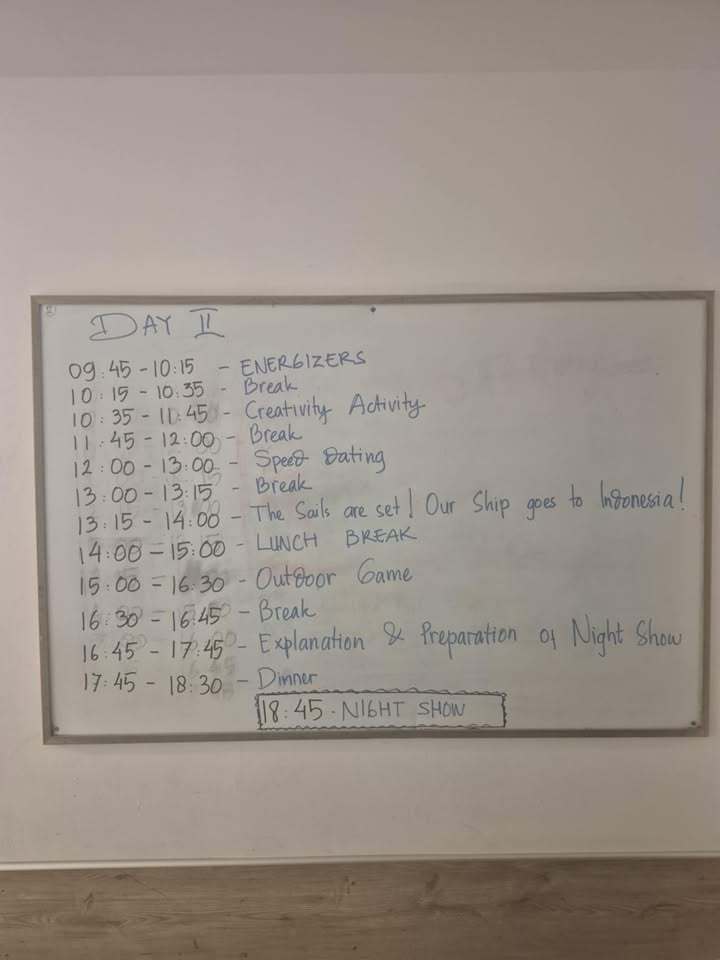 DAY II
09:45 - 10:15 - ENERGIZERS
10:15 - 10:35 - Break
10:35 - 11:45 - Creativity Activity
11:45 - 12:00 - Break
12:00 - 13:00 - Speed Dating
13:00 - 13:15 - Break
13:15 - 14:00 - The Sails are set! Our Ship goes to Indonesia!
14:00 - 15:00 - LUNCH BREAK
15:00 - 16:30 - Outdoor Game
16:30 - 16:45 - Break
16:45 - 17:45 - Explanation & Preparation of Night Show
17:45 - 18:30 - Dinner
18:45 - NIGHT SHOW